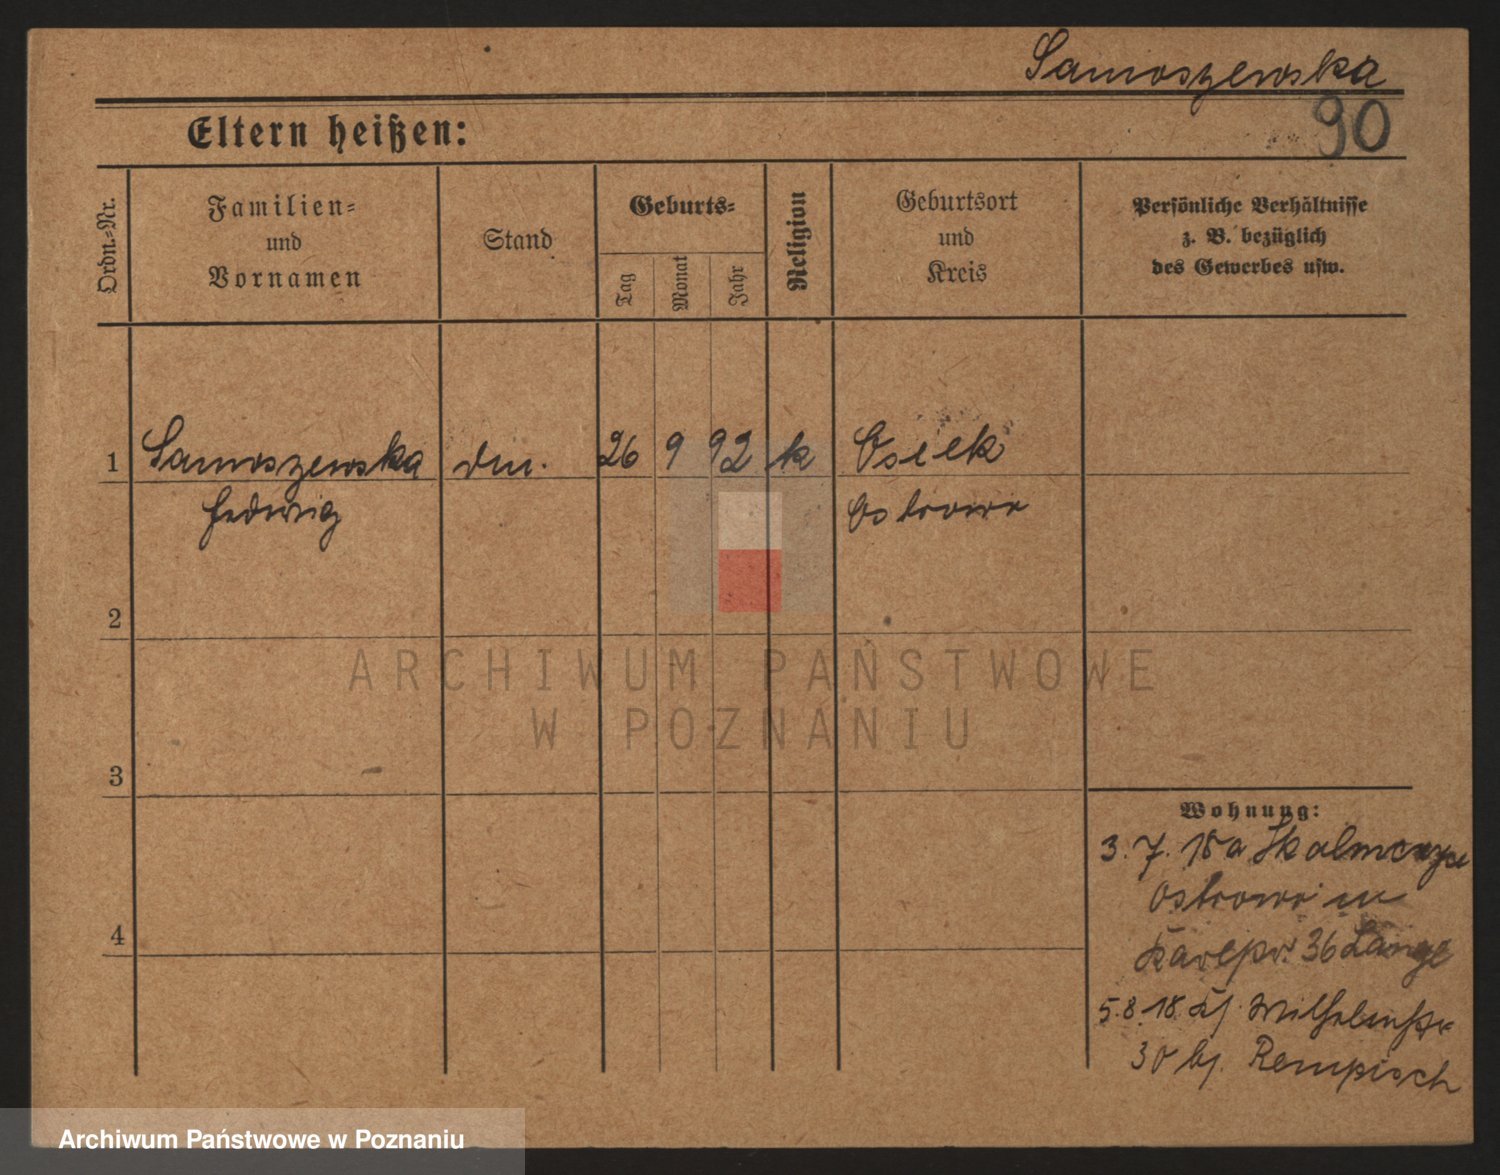 Samoszewska
90
Eltern heißen:
Ordn.=Nr.
Familien=
und
Vornamen
Stand
Geburts=
Tag
Monat
Jahr
Religion
Geburtsort
und
Kreis
Persönliche Verhältnisse
z. B. bezüglich
des Gewerbes usw.
1 Samoszewska dm. 26 9 92 k Osiek
Hedwig Ostrowo
2
3
4
Wohnung:
3. 7. 18 a Skalmerzyce
Ostrowo in
36 Lange
5. 8. 18. Wilhelmstr
30 bj. Rempisch
ARCHIWUM PAŃSTWOWE
W POZNANIU
Archiwum Państwowe w Poznaniu